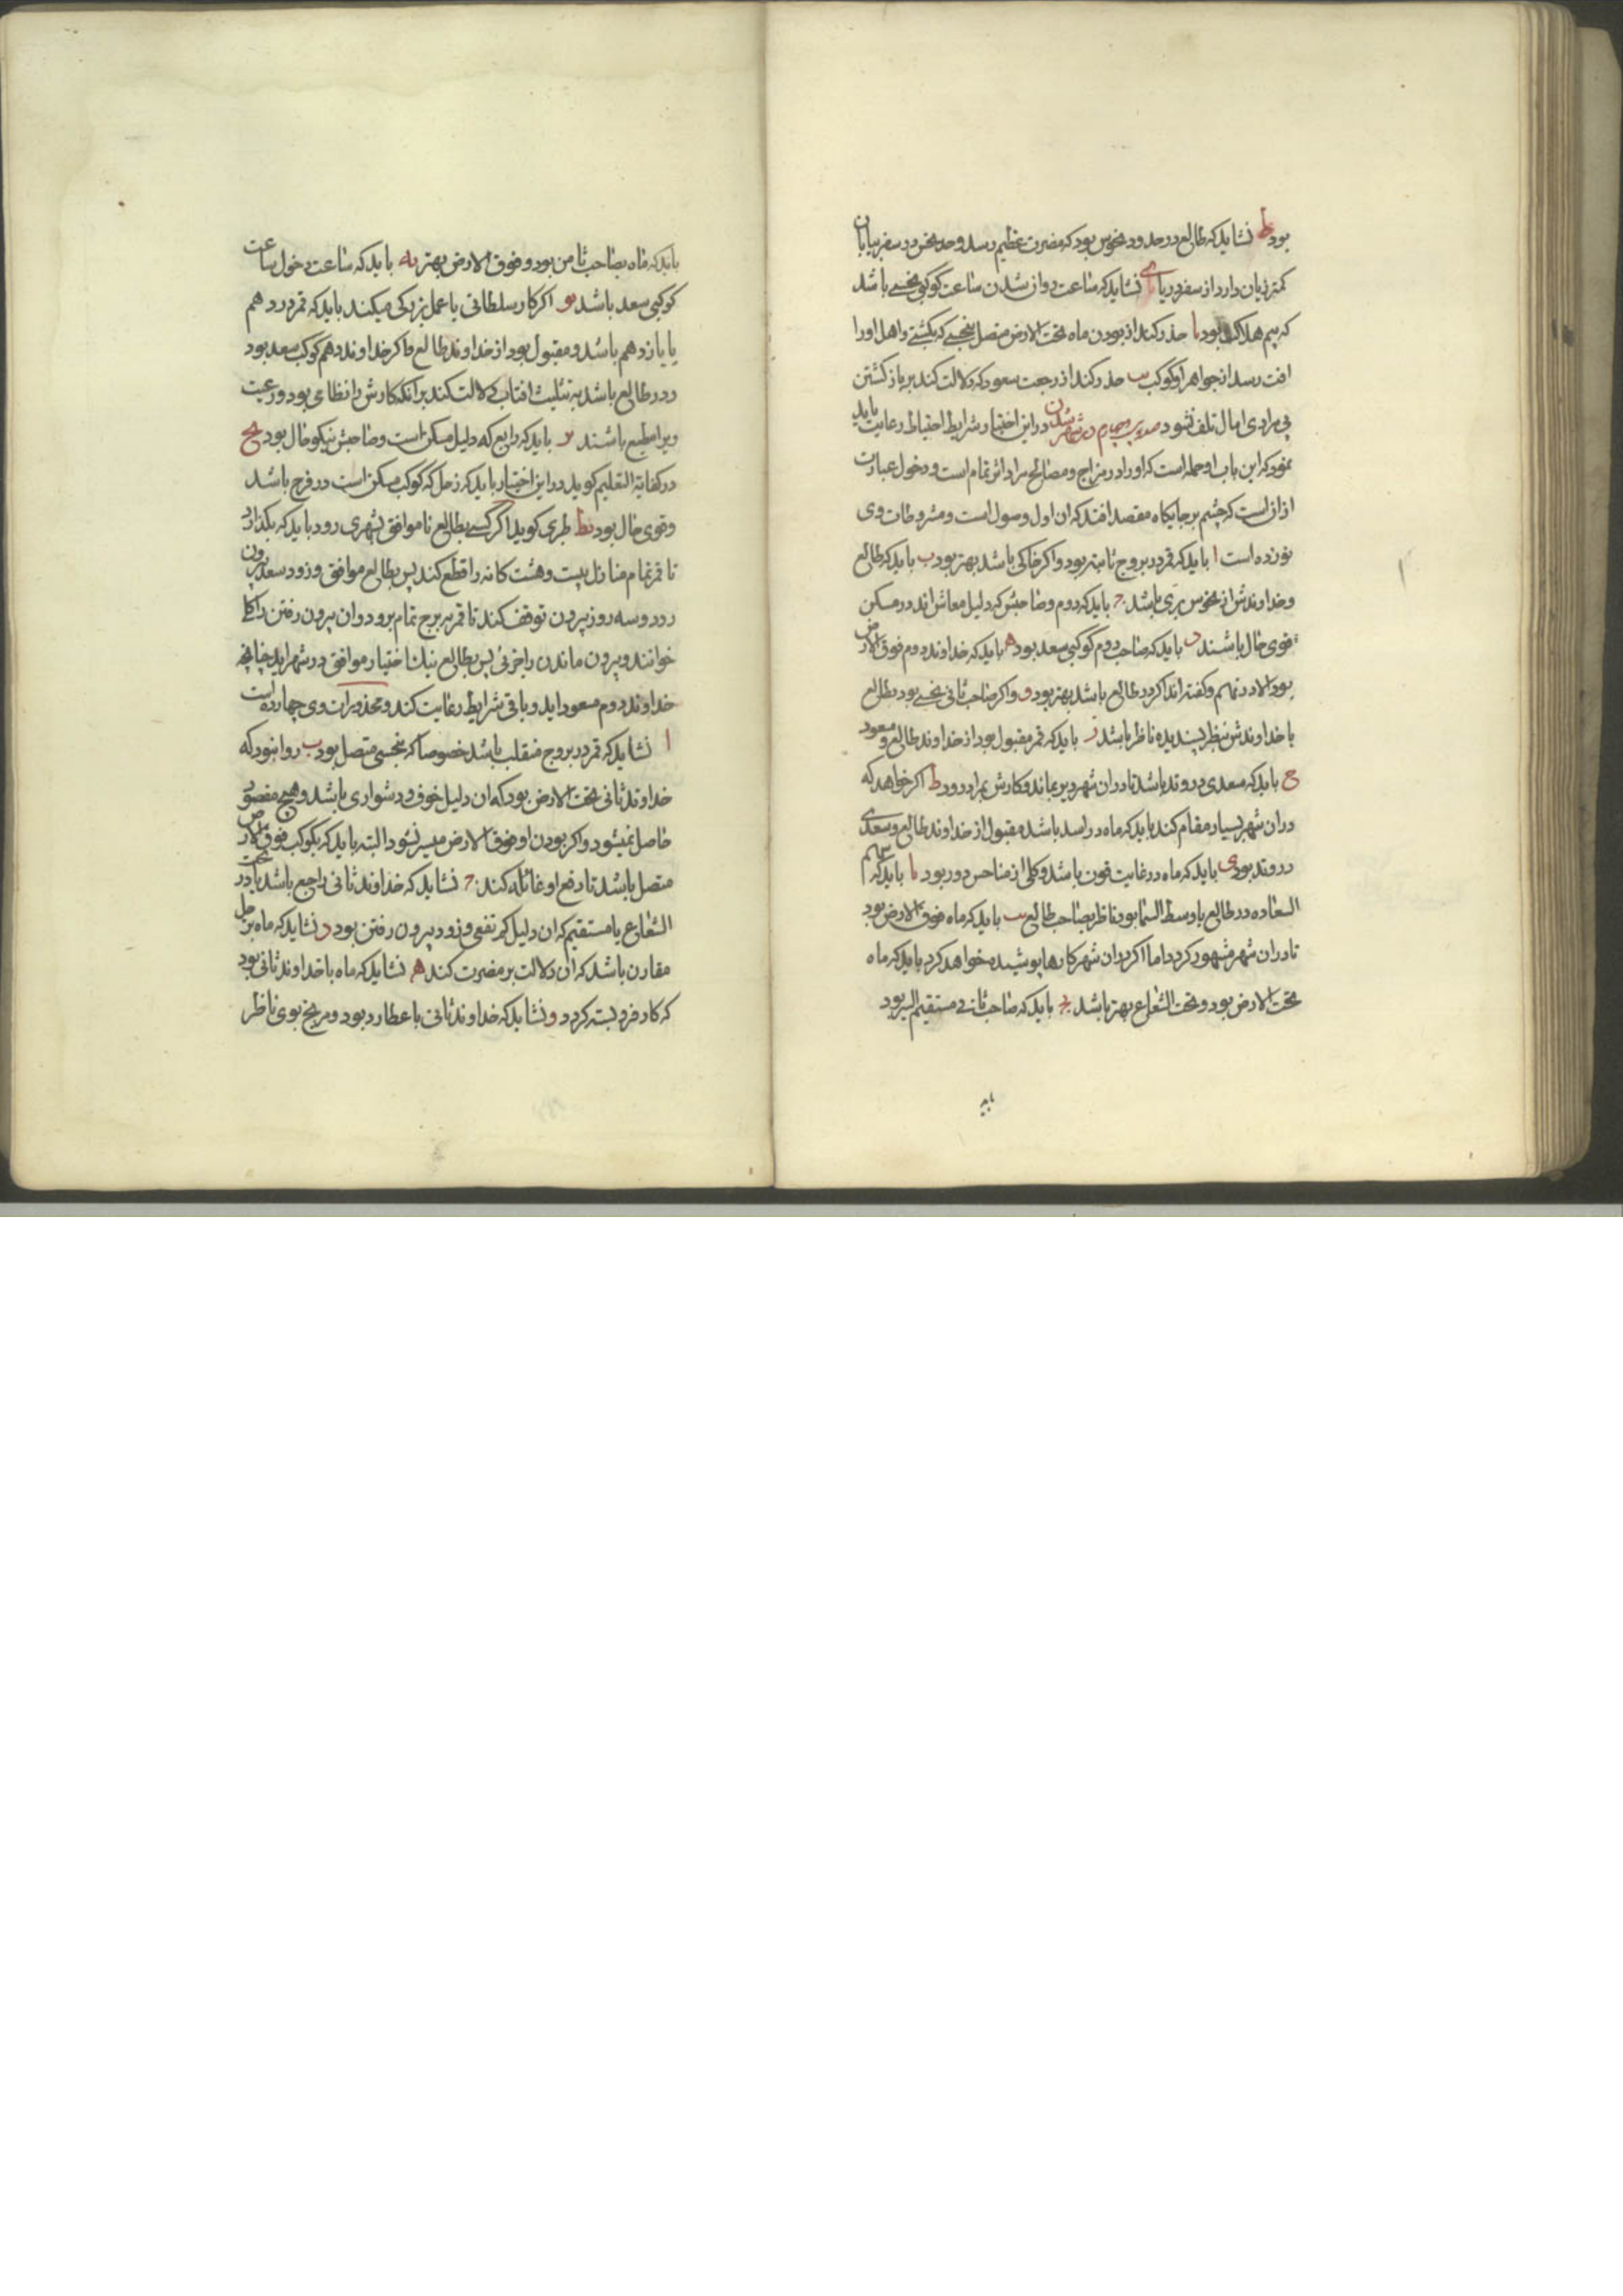 بود ط نشاید که طالع در حدود نحوس بود که مضرت عظیم رسد و حد نحس در سفر بیابان
کمتر زیان دارد از سفر دریا ی نشاید که ساعت روان شدن ساعت کوکبی نحسی باشد
که بیم هلاک بود یا حذر کند از بودن ماه تحت الارض متصل بنحسی که بکشتی و اهل اورا
افت رسد از جواهر او کوکب یب حذر کند از رجعت سعود که دلالت کند بر باز کشتن
بی مرادی اما مال تلف نشود در شهر شدن در این اختیار شرایط احتیاط رعایت باید
نمود که این باب اوجمله است که اورا در مزاج و مصالح مرد اثر تمام است و دخول عبارت
از آن است که چشم بر جایکاه مقصد افتد که آن اول وصول است و مشروطات وی
نوزده است ا باید که قمر در بروج ثابته بود و اکر خاکی باشد بهتر بود ب باید که طالع
و خداوندش از نحوس بری باشد ج باید که دوم و صاحبش که دلیل معاش اند در مسکن
قوی حال باشند د باید که صاحب دوم کوکبی سعد بود ه باید که خداوند دوم فوق الارض
بود الا در نهم و کفته اند اکر در طالع باشد بهتر بود و و اکر صاحب ثانی نحسی بود بطالع
یا خداوندش بنظر پسندیده ناظر باشد ز باید که قمر مقبول بود از خداوند طالع و مسعود
ح باید که سعدی در وتد باشد تا در آن شهر دیر بماند و کارش بمراد رود ط اکر خواهد که
در آن شهر بسیار مقام کند باید که ماه در اسد باشد مقبول از خداوند طالع و سعدی
در وتد بود ی باید که ماه در غایت قوت باشد و کلی از مناحس دور بود یا باید که سهم
السعاده در طالع یا وسط السما بود ناظر بصاحب طالع یب باید که ماه فوق الارض بود
تا در آن شهر مشهور کردد اما اکر در آن شهر کارها پوشیده خواهد کرد باید که ماه
تحت الارض بود و تحت الشعاع بهتر باشد یج باید که صاحب ثانی مستقیم السیر بود
باید
باید که ماه بصاحب ثامن بود و فوق الارض بهتر یه باید که ساعت دخول ساعت
کوکبی سعد باشد یو اکر کار سلطانی یا عمل بزرکی میکند باید که قمر در دهم
یا یازدهم باشد و مقبول بود از خداوند طالع و اکر خداوند دهم کوکب سعد بود
و در طالع باشد به تثلیث افتاب دلالت کند بر آنکه کارش را نظامی بود و رعیت
ویرا مطیع باشند یز باید که رابع که دلیل مسکن است و صاحبش نیکو حال بود یح
در کفایة التعلیم کوید در این اختیار باید که زحل که کوکب مسکن است در فرح باشد
و قوی حال بود یط طبری کوید اکر کسی بطالع ناموافق بشهری رود باید که بکذارد
تا قمر تمام منازل بیست و هشت کانه را قطع کند پس بطالع موافق و زود سعد بیرون
رود و سه روز بیرون توقف کند تا قمر ببرج تمام برود و آن بیرون رفتن را کلی
خوانند و بیرون ماندن را جزئی پس بطالع نیک اختیار موافق در شهر اید چنانچه
خداوند دوم مسعود اید و باقی شرایط رعایت کند و محذورات وی چهارده است
ا نشاید که قمر در بروج منقلب باشد خصوصا که بنحسی متصل بود ب روا نبود که
خداوند ثانی تحت الارض بود که آن دلیل خوف و دشواری باشد و هیچ مقصود
حاصل نمیشود و اکر بودن او فوق الارض میسر نشود البته باید که بکوکب فوق الارض
متصل باشد تا رفع او غائله کند ج نشاید که خداوند ثانی راجع باشد یا در تحت
الشعاع یا مستقیم که آن دلیل کم نفعی و زود بیرون رفتن بود د نشاید که ماه بزحل
مقارن باشد که آن دلالت بر مضرت کند ه نشاید که ماه با خداوند ثانی بود
که کار فرو بسته کردد و نشاید که خداوند ثانی با عطارد بود و مریخ بوی ناظر